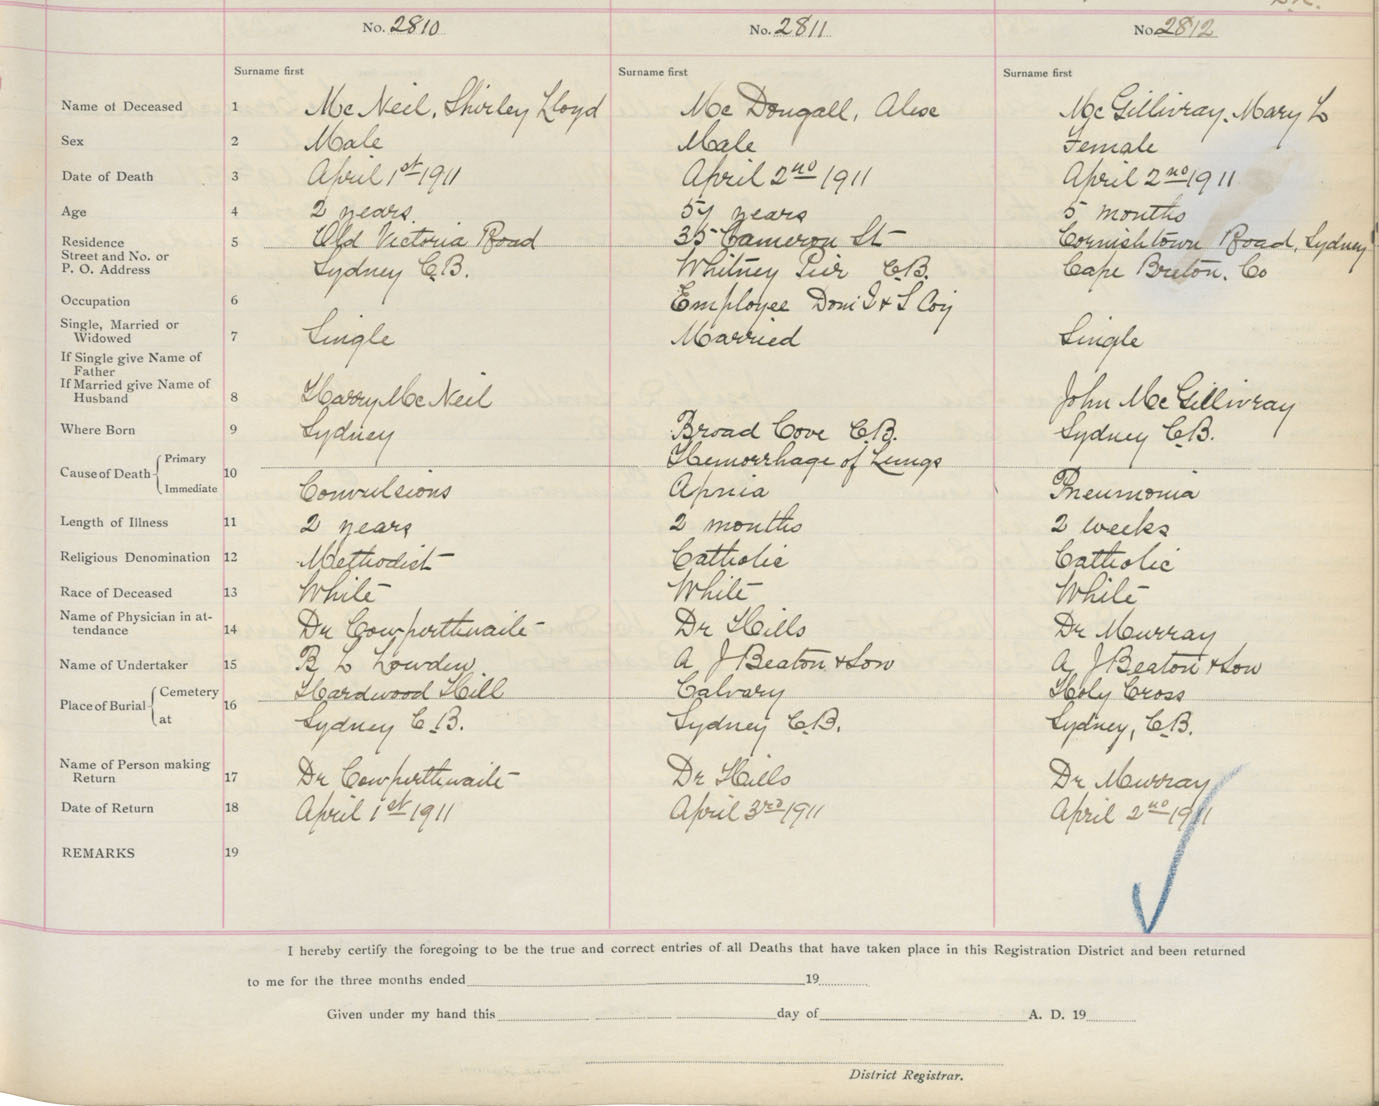 No. 2810 No. 2811 No. 2812
Surname first Surname first Surname first
Name of Deceased 1 Mc Neil, Shirley Lloyd Mc Dougall, Alex Mc Gillivray, Mary L
Sex 2 Male Male Female
Date of Death 3 April 1st 1911 April 2nd 1911 April 2nd 1911
Age 4 2 years 57 years 5 months
Residence
Street and No. or
P. O. Address
5 Old Victoria Road 35 Cameron St Cornishtown Road, Sydney
Sydney C.B. Whitney Pier C.B. Cape Breton. Co
Occupation 6 Employee Dom I & S Coy
Single, Married or
Widowed 7 Single Married Single
If Single give Name of
Father
If Married give Name of
Husband 8 Harry Mc Neil John Mc Gillivray
Where Born 9 Sydney Broad Cove C.B. Sydney C.B.
Cause of Death 10 Primary Hemorrhage of Lungs
Immediate Convulsions Apnia Pneumonia
Length of Illness 11 2 years 2 months 2 weeks
Religious Denomination 12 Methodist Catholic Catholic
Race of Deceased 13 White White White
Name of Physician in at-
tendance 14 Dr Cowperthwaite Dr Hills Dr Murray
Name of Undertaker 15 B L Lowden A J Beaton & Son A J Beaton & Son
Place of Burial 16 Cemetery Hardwood Hill Calvary Holy Cross
at Sydney C.B. Sydney C.B. Sydney, C.B.
Name of Person making
Return 17 Dr Cowperthwaite Dr Hills Dr Murray
Date of Return 18 April 1st 1911 April 3rd 1911 April 2nd 1911
REMARKS 19
I hereby certify the foregoing to be the true and correct entries of all Deaths that have taken place in this Registration District and been returned
to me for the three months ended 19
Given under my hand this day of A. D. 19
District Registrar.